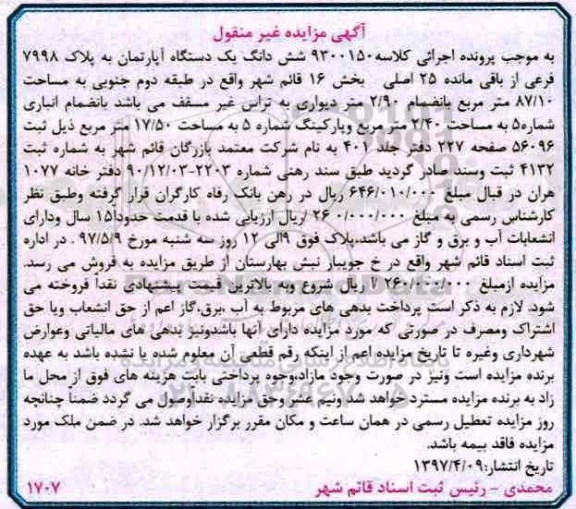 آگهی مزایده غیر منقول
به موجب پرونده اجرائی کلاسه ۹۳۰۰۱۵۰ شش دانگ یک دستگاه آپارتمان به پلاک ۷۹۹۸
فرعی از باقی مانده ۲۵ اصلی بخش ۱۶ قائم شهر واقع در طبقه دوم جنوبی به مساحت
۸۷/۱۰ متر مربع بانضمام ۲/۹۰ متر دیواری به تراس غیر مسقف می باشد بانضمام انباری
شماره۵ به مساحت ۲/۴۰ متر مربع وپارکینگ شماره ۵ به مساحت ۱۷/۵۰ متر مربع ذیل ثبت
۵۶۰۹۶ صفحه ۲۲۷ دفتر جلد ۴۰۱ به نام شرکت معتمد بازرگان قائم شهر به شماره ثبت
۴۱۳۲ ثبت وسند صادر گردید طبق سند رهنی شماره ۲۲۰۳-۹۰/۱۲/۰۳ دفتر خانه ۱۰۷۷
هران در قبال مبلغ ۶۴۶/۰۱۰/۰۰۰ ریال در رهن بانک رفاه کارگران قرار گرفته وطبق نظر
کارشناس رسمی به مبلغ ۲۶۰۰/۰۰۰/۰۰۰ ریال ارزیابی شده با قدمت حدودا۱۵ سال ودارای
انشعابات آب و برق و گاز می باشد،پلاک فوق ۹الی ۱۲ روز سه شنبه مورخ ۹۷/۵/۹ . در اداره
ثبت اسناد قائم شهر واقع در خ جویبار نبش بهارستان از طریق مزایده به فروش می رسد.
مزایده ازمبلغ ریال شروع وبه بالاترین قیمت پیشنهادی نقدا فروخته می
شود. لازم به ذکر است پرداخت بدهی های مربوط به آب ،برق،گاز اعم از حق انشعاب ویا حق
اشتراک ومصرف در صورتی که مورد مزایده دارای آنها باشدونیز بدهی های مالیاتی وعوارض
شهرداری وغیره تا تاریخ مزایده اعم از اینکه رقم قطعی آن معلوم شده یا نشده باشد به عهده
برنده مزایده است ونیز در صورت وجود مازاد،وجوه پرداختی بابت هزینه های فوق از محل ما
زاد به برنده مزایده مسترد خواهد شدونیم عشروحق مزایده نقداًوصول می گردد ضمناً چنانچه
روز مزایده تعطیل رسمی در همان ساعت و مکان مقرر برگزار خواهد شد. در ضمن ملک مورد
مزایده فاقد بیمه باشد.
تاریخ انتشار:۱۳۹۷/۴/۰۹
محمدی - رئیس ثبت اسناد قائم شهر ۱۷۰۷